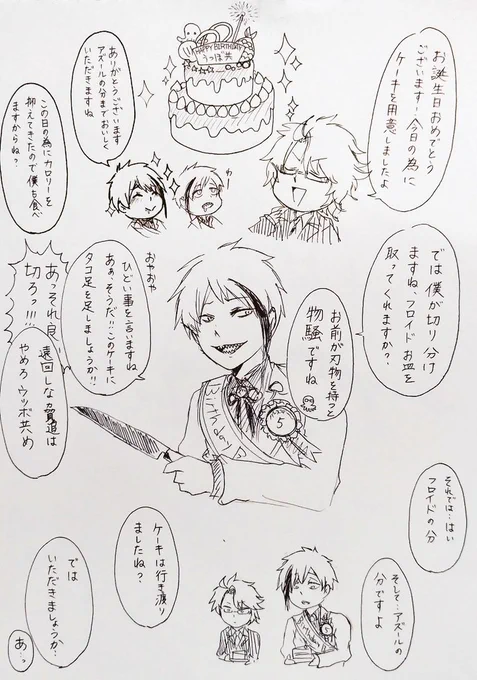 お誕生日おめでとう
ございます！今日の為に
ケーキを用意しましたよ
HAPPY BIRTHDAY
うつぼ共
ありがとうございます
アズールの分までおいしく
いただきますね
この日の為にカロリーを
抑えてきたので僕も食べ
ますからね？
では僕が切り分け
ますね、フロイドお皿を
取ってくれますか？
お前が刃物を持つと
物騒ですね
おやおや
ひどい事を言いますね
あぁ、そうだ!!このケーキに
タコ足を足しましょうか!!
あっそれ良
切ろっ!!!
遠回しな脅迫は
やめろウツボ共め
Birthday
5
それでは…はい
フロイドの分
そして…アズールの
分ですよ
ケーキは行き渡り
ましたね？
では
いただきましょうか…
あ…っ